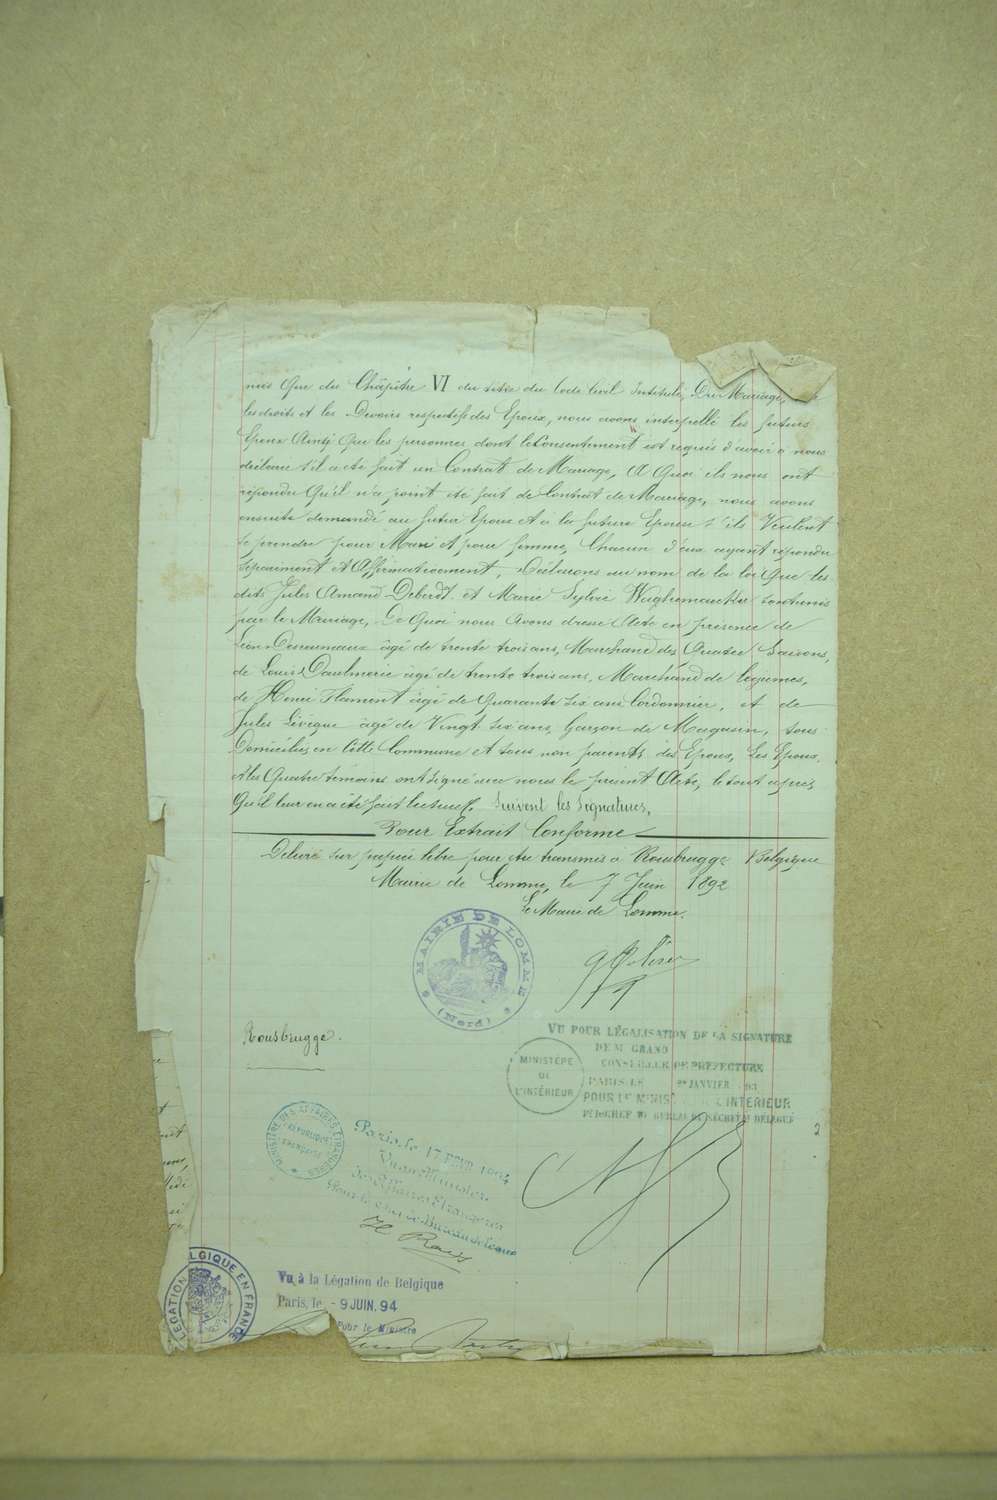 mis Que du Chapître VI du titre du Code Civil Intitulé, Du Mariage,
les droits et les Devoirs respectifs des Epoux, nous avons interpellé les futurs
Epoux Ainsi Que les personnes dont le Consentement est requis d'avoir à nous
déclarer s'il a été fait un Contrat de Mariage, A Quoi ils nous ont
répondu Qu'il n'a point été fait de Contrat de Mariage, nous avons
ensuite demandé au futur Epoux et à la future Epouse s'ils Veulent
se prendre pour Mari et pour femme, Chacun d'eux ayant répondu
séparément et Affirmativement, Déclarons au nom de la loi Que les
dits Jules Amand Deberdt et Marie Sylvie Waghemacker sont unis
par le Mariage, De Quoi nous Avons dressé Acte en présence de
Léon Desrumaux âgé de trente trois ans, Marchand des Quatre Saisons,
de Louis Daulmerie âgé de trente trois ans, Marchand de légumes,
de Henri Flament âgé de Quarante six ans Cordonnier, et de
Jules Lévêque âgé de Vingt six ans, Garçon de Magasin, tous
Domiciliés en Cette Commune et tous non parents des Epoux, Les Epoux
et les Quatre témoins ont signé avec nous le présent Acte, le tout après
Qu'il leur en a été fait lecture. Suivent les Signatures,
Pour Extrait Conforme
Délivré sur papier libre pour être transmis à Rousbrugge Belgique
Mairie de Lomme, le 7 Juin 1892
Le Maire de Lomme,
MAIRIE DE LOMME
(Nord)
Rousbrugge.
VU POUR LÉGALISATION DE LA SIGNATURE
DE M GRAND
CONSEILLER DE PRÉFECTURE
PARIS LE JANVIER
POUR LE MINISTRE L'INTÉRIEUR
MINISTÈRE
DE
L'INTÉRIEUR
2
MINISTÈRE DES AFFAIRES ÉTRANGÈRES
RÉPUBLIQUE
FRANÇAISE
Paris, le 17 FEVR 1894
Vu au Ministère
des Affaires Etrangères
Pour le Chef de Bureau délégué
LÉGATION BELGIQUE EN FRANCE
Vu à la Légation de Belgique
Paris, le - 9 JUIN. 94
Pour le Ministre